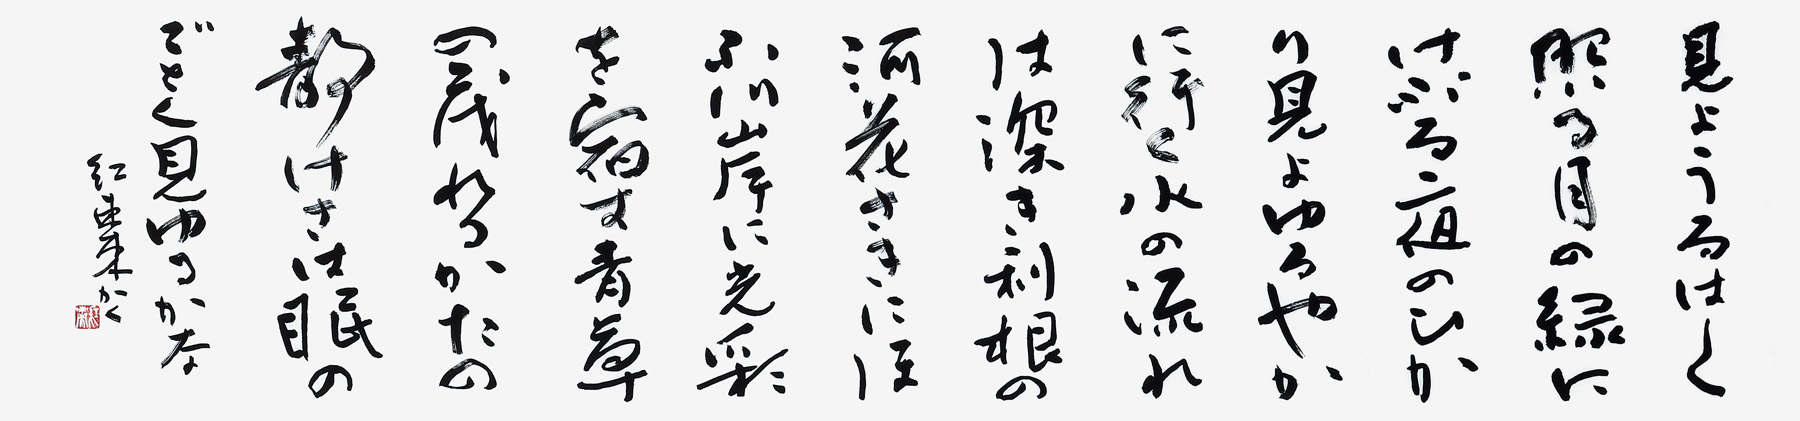 見ようるはし
照る月の緑に
けぶる夜のひか
り見よゆるやか
に行く水の流れ
は深き利根の
河花さきにほ
ふ川岸に光彩
を宿す青草
の茂れるかたの
静けさは眠の
ごとく見ゆるかな
紅 かく